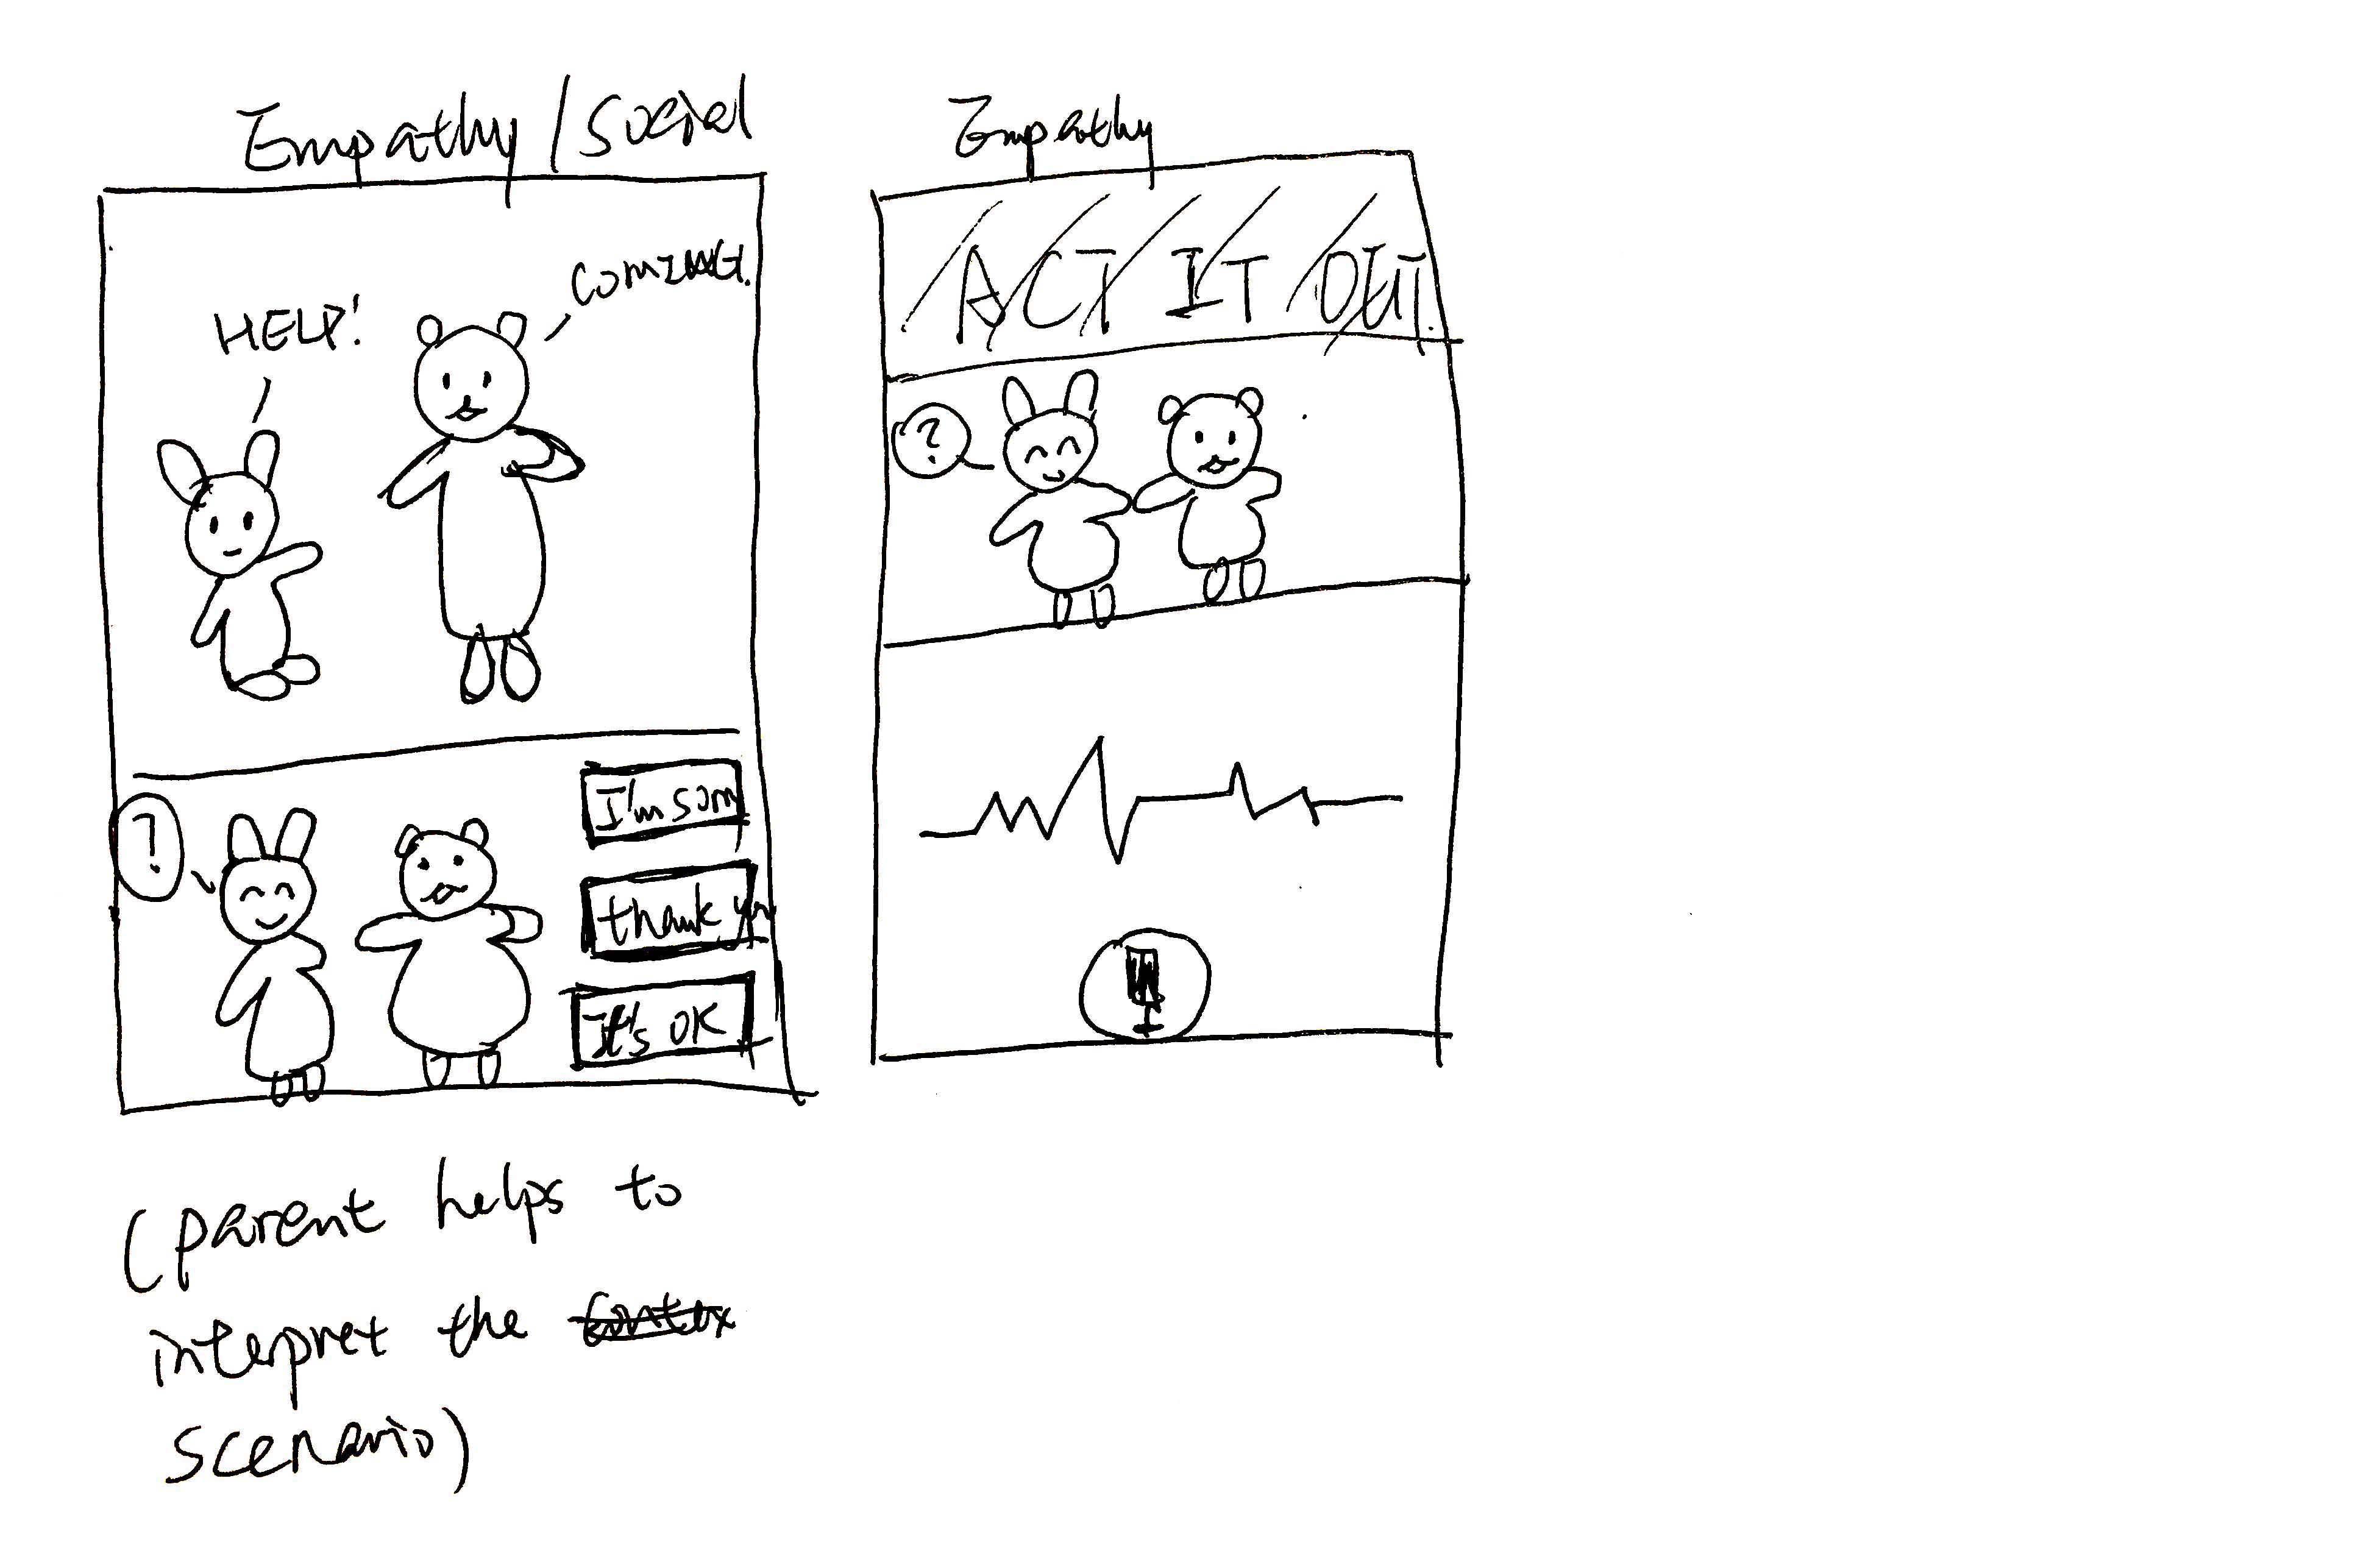 Empathy / Social
HELP!
COMING.
?
I'm sorry
thank you
It's OK
(parent helps to
interpret the
scenario)
Empathy
ACT IT OUT.
?